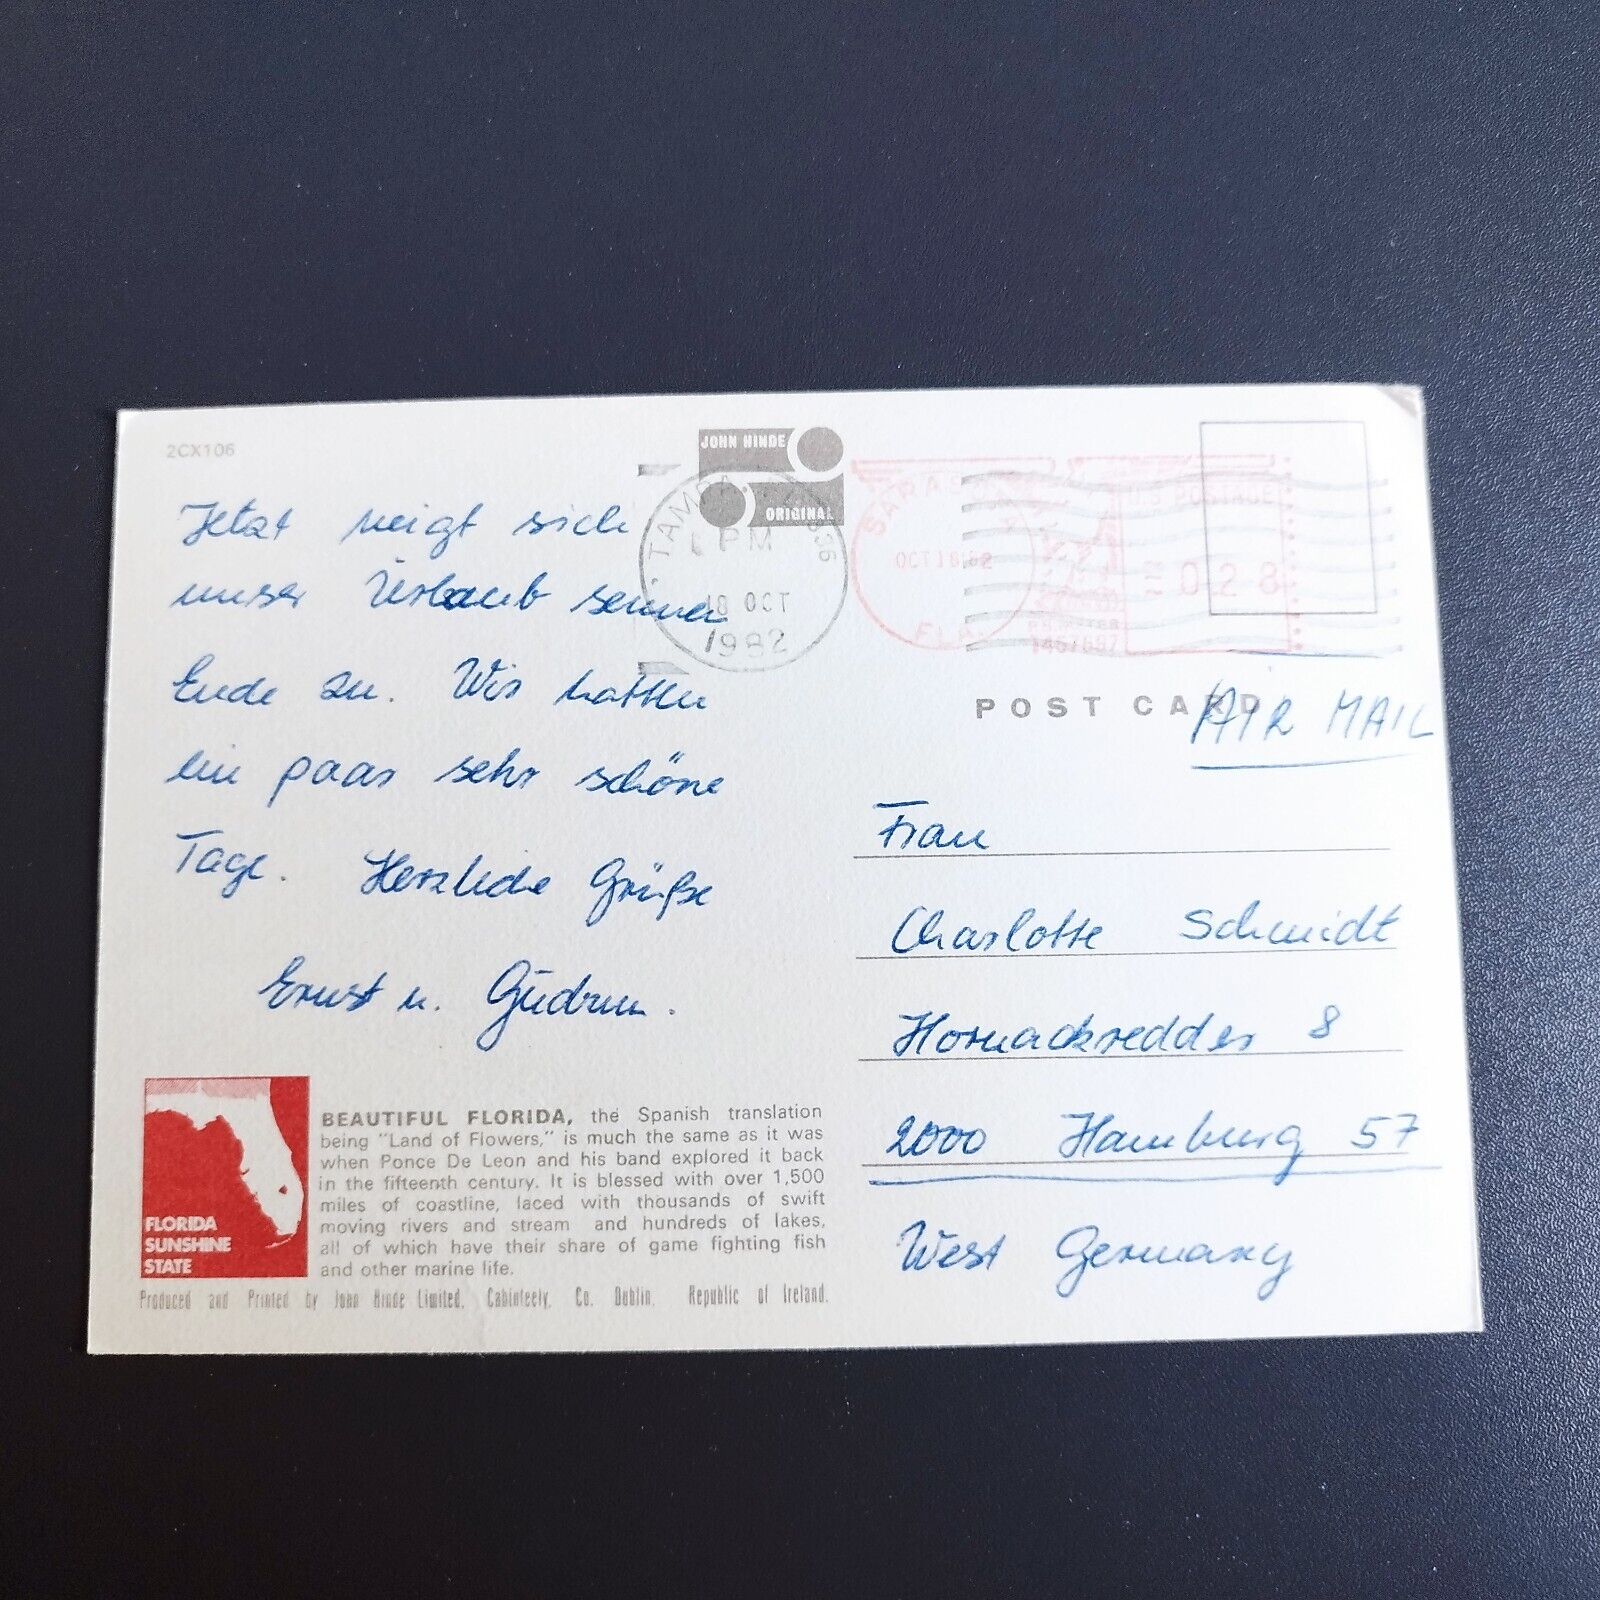 2CX106
JOHN HINDE
ORIGINAL
Jetzt neigt sich
unser Urlaub seinem
Ende zu. Wir hatten
ein paar sehr schöne
Tage. Herzliche Grüße
Ernst u. Gudrun.
TAMPA,
PM
18 OCT
1982
OCT 18 '82
FLA.
U.S. POSTAGE
028
POST CARD
AIR MAIL
Frau
Charlotte Schmidt
Hornackredder 8
2000 Hamburg 57
West Germany
FLORIDA
SUNSHINE
STATE
BEAUTIFUL FLORIDA, the Spanish translation
being "Land of Flowers," is much the same as it was
when Ponce De Leon and his band explored it back
in the fifteenth century. It is blessed with over 1,500
miles of coastline, laced with thousands of swift
moving rivers and stream and hundreds of lakes,
all of which have their share of game fighting fish
and other marine life.
Produced and Printed by John Hinde Limited, Cabinteely, Co. Dublin, Republic of Ireland.